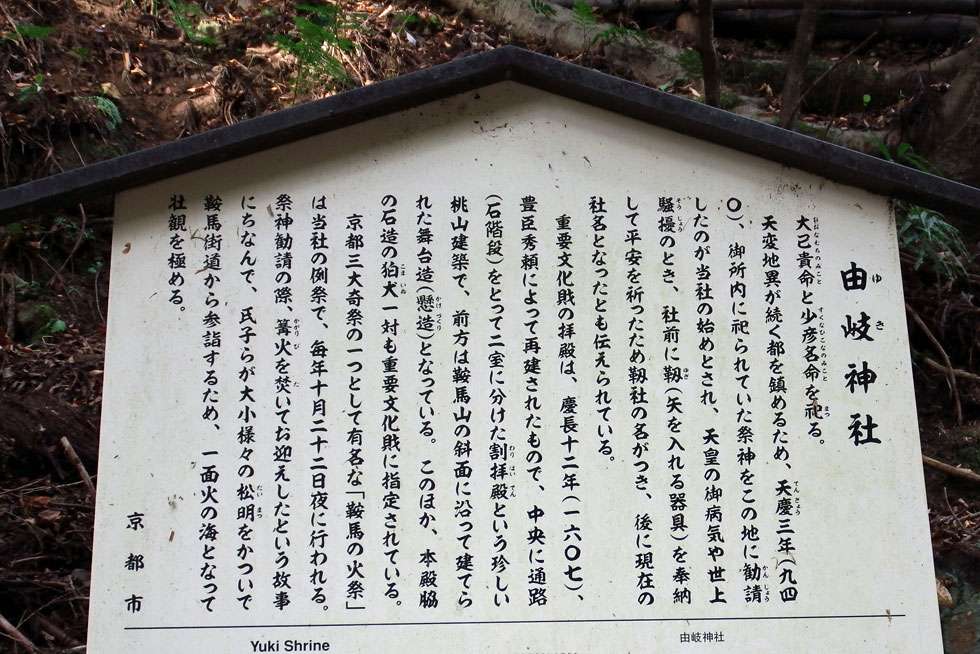 由岐神社
大己貴命と少彦名命を祀る。
天変地異が続く都を鎮めるため、天慶三年(九四
〇)、御所内に祀られていた祭神をこの地に勧請
したのが当社の始めとされ、天皇の御病気や世上
騒擾のとき、社前に靱(矢を入れる器具)を奉納
して平安を祈ったため靱社の名がつき、後に現在の
社名となったとも伝えられている。
重要文化財の拝殿は、慶長十二年(一六〇七)、
豊臣秀頼によって再建されたもので、中央に通路
(石階段)をとって二室に分けた割拝殿という珍しい
桃山建築で、前方は鞍馬山の斜面に沿って建てら
れた舞台造(懸造)となっている。このほか、本殿脇
の石造の狛犬一対も重要文化財に指定されている。
京都三大奇祭の一つとして有名な「鞍馬の火祭」
は当社の例祭で、毎年十月二十二日夜に行われる。
祭神勧請の際、篝火を焚いてお迎えしたという故事
にちなんで、氏子らが大小様々の松明をかついで
鞍馬街道から参詣するため、一面火の海となって
壮観を極める。
京都市
Yuki Shrine
由岐神社